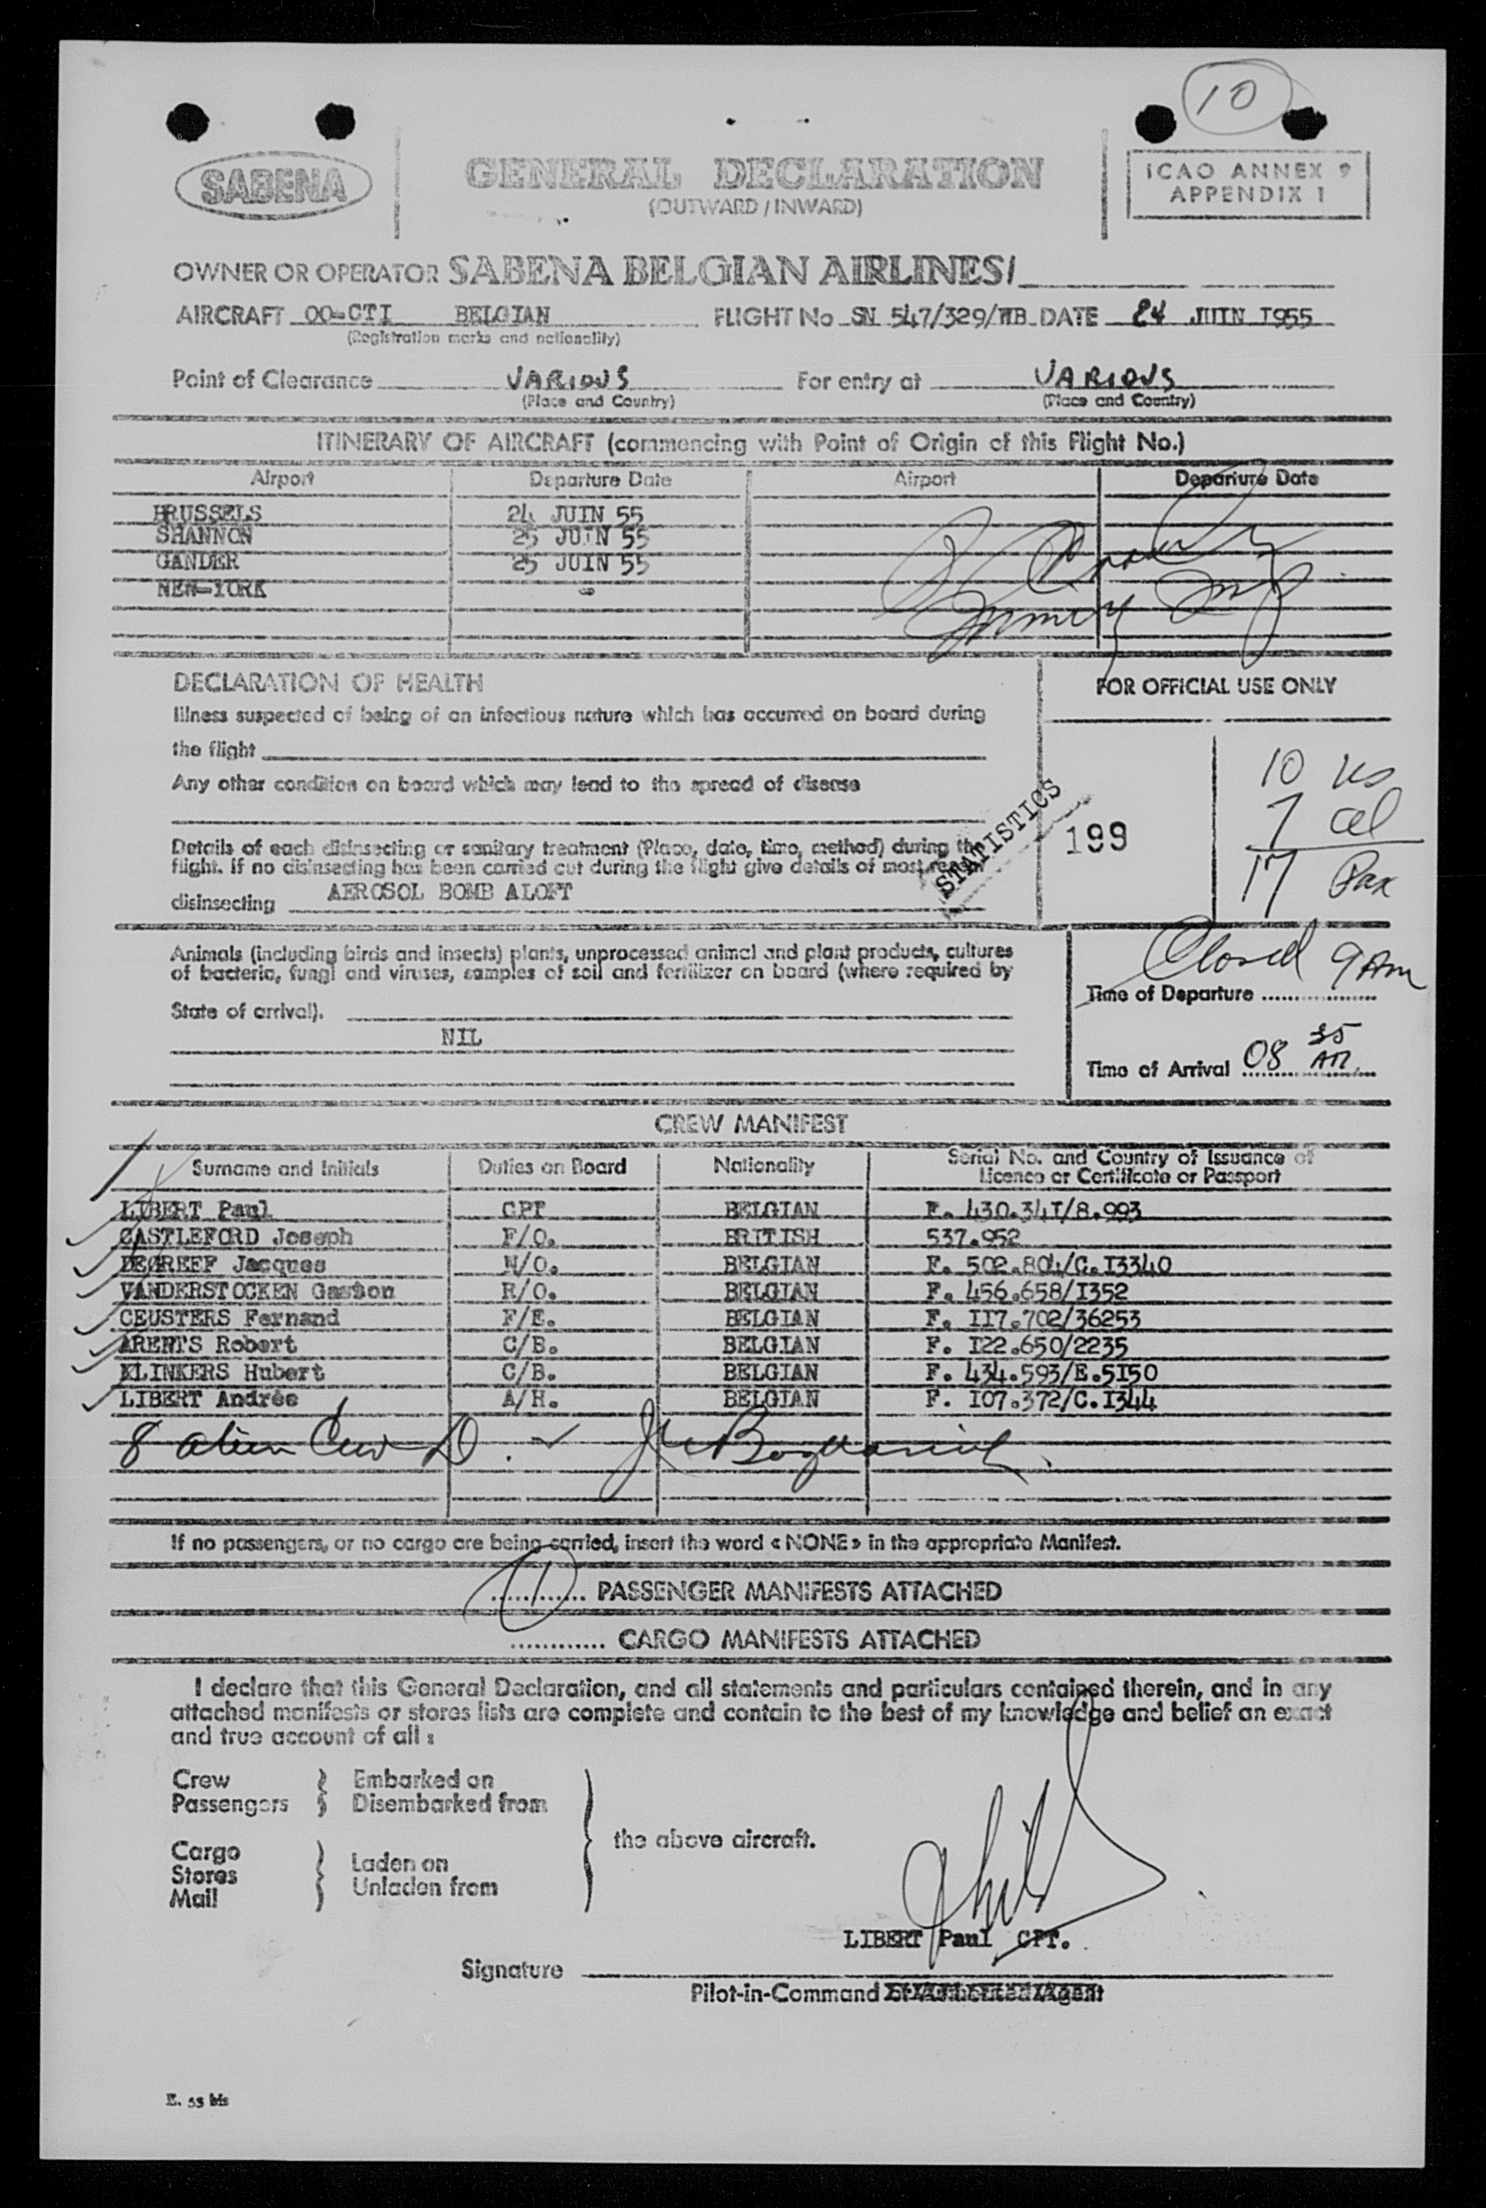 10
SABENA
GENERAL DECLARATION
(OUTWARD / INWARD)
ICAO ANNEX 9
APPENDIX 1
OWNER OR OPERATOR SABENA BELGIAN AIRLINES/
AIRCRAFT OO-CTI BELGIAN FLIGHT No SN 547/329/WB DATE 24 JUIN I955
(Registration marks and nationality)
Point of Clearance VARIOUS For entry at VARIOUS
(Place and Country) (Place and Country)
ITINERARY OF AIRCRAFT (commencing with Point of Origin of this Flight No.)
Airport Departure Date Airport Departure Date
BRUSSELS 24 JUIN 55
SHANNON 25 JUIN 55
GANDER 25 JUIN 55
NEW-YORK -
DECLARATION OF HEALTH
FOR OFFICIAL USE ONLY
Illness suspected of being of an infectious nature which has occurred on board during
the flight
Any other condition on board which may lead to the spread of disease
Details of each disinsecting or sanitary treatment (Place, date, time, method) during the
flight. If no disinsecting has been carried out during the flight give details of most recent
disinsecting AEROSOL BOMB ALOFT
STATISTICS
199
10 us
7 al
17 Pax
Animals (including birds and insects) plants, unprocessed animal and plant products, cultures
of bacteria, fungi and viruses, samples of soil and fertilizer on board (where required by
State of arrival).
NIL
Closed 9 AM
Time of Departure
Time of Arrival 08 35 AM.
CREW MANIFEST
Surname and Initials Duties on Board Nationality Serial No. and Country of Issuance of
Licence or Certificate or Passport
LIBERT Paul CPT BELGIAN F. 430.34I/8.993
CASTLEFORD Joseph F/O. BRITISH 537.952
DEGREEF Jacques N/O. BELGIAN F. 502.804/C.I3340
VANDERSTOCKEN Gaston R/O. BELGIAN F. 456.658/I352
CEUSTERS Fernand F/E. BELGIAN F. II7.702/36253
ARENTS Robert C/B. BELGIAN F. I22.650/2235
KLINKERS Hubert C/B. BELGIAN F. 434.593/E.5I50
LIBERT Andrée A/H. BELGIAN F. I07.372/C.I344
8 alien Crew D.
If no passengers, or no cargo are being carried, insert the word « NONE » in the appropriate Manifest.
1 PASSENGER MANIFESTS ATTACHED
............ CARGO MANIFESTS ATTACHED
I declare that this General Declaration, and all statements and particulars contained therein, and in any
attached manifests or stores lists are complete and contain to the best of my knowledge and belief an exact
and true account of all :
Crew Embarked on
Passengers Disembarked from
the above aircraft.
Cargo
Stores Laden on
Mail Unladen from
LIBERT Paul CPT.
Signature
Pilot-in-Command or Authorized Agent
E. 53 bis